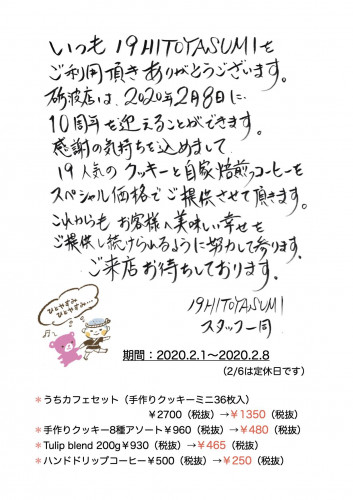 いつも 19HITOYASUMIを
ご利用頂きありがとうございます。
砺波店は、2020年2月8日に
10周年を迎えることができます。
感謝の気持ちを込めまして
19人気の クッキーと自家焙煎コーヒーを
スペシャル価格でご提供させて頂きます。
これからも お客様へ美味しい幸せを
ご提供し続けられるように努力して参ります。
ご来店お待ちしております。
19HITOYASUMI
スタッフ一同
ひとやすみ
ひとやすみ…
期間：2020.2.1〜2020.2.8
(2/6は定休日です）
＊うちカフェセット（手作りクッキーミニ36枚入）
￥2700（税抜）→￥1350（税抜）
＊手作りクッキー8種アソート￥960（税抜）→￥480（税抜）
＊Tulip blend 200g￥930（税抜）→￥465（税抜）
＊ハンドドリップコーヒー￥500（税抜）→￥250（税抜）